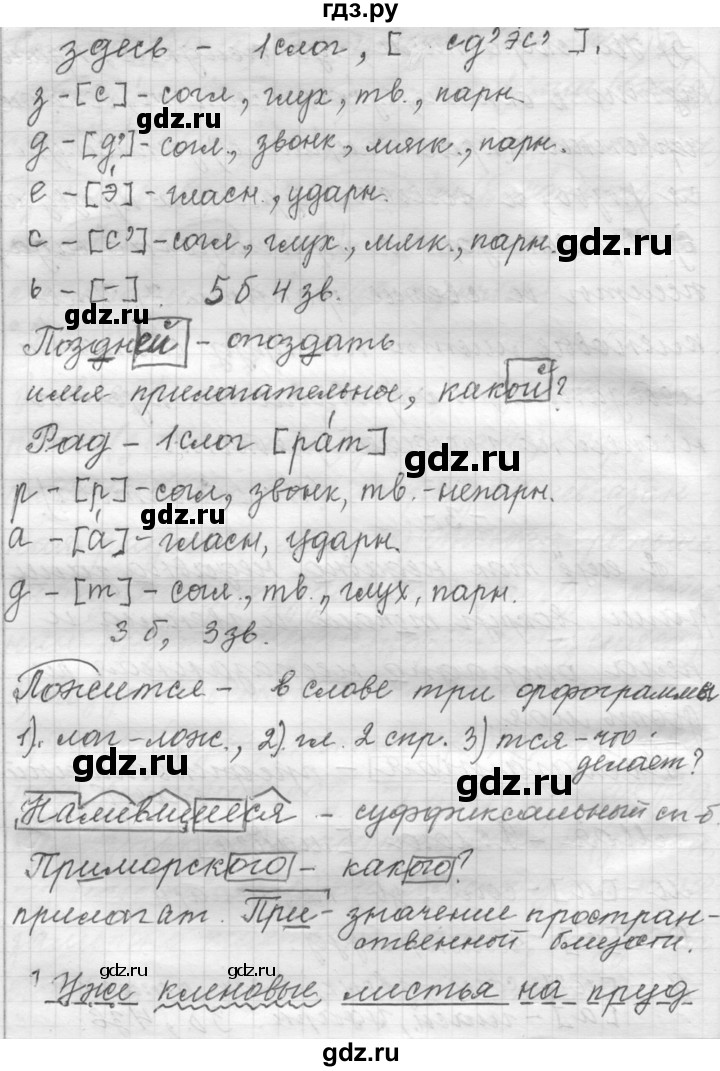 гдз.ру
здесь - 1 слог, [ сд'эс' ].
з - [с] - согл., глух., тв., парн.
gdz.ru
д - [д'] - согл., звонк., мягк., парн.
е - [э́] - гласн., ударн.
с - [с'] - согл., глух., мягк., парн.
gdz.ru
ь - [-] 5 б 4 зв.
gdz.ru
Поздней - опоздать
имя прилагательное, какой?
Рад - 1 слог [ра́т]
gdz.ru
р - [р] - согл., звонк., тв. - непарн.
gdz.ru
а - [а́] - гласн., ударн.
д - [т] - согл., тв., глух., парн.
3 б, 3 зв.
gdz.ru
Ложится - в слове три орфограммы
1). лаг-лож., 2). гл. 2 спр. 3) тся - что
gdz.ru
делает?
Намевшиеся - суффиксальный сп-б.
Приморского - какого?
gdz.ru
прилагат. При - значение простран-
ственной близости.
gdz.ru gdz.ru
1 Уже кленовые листья на пруд
gdz.ru